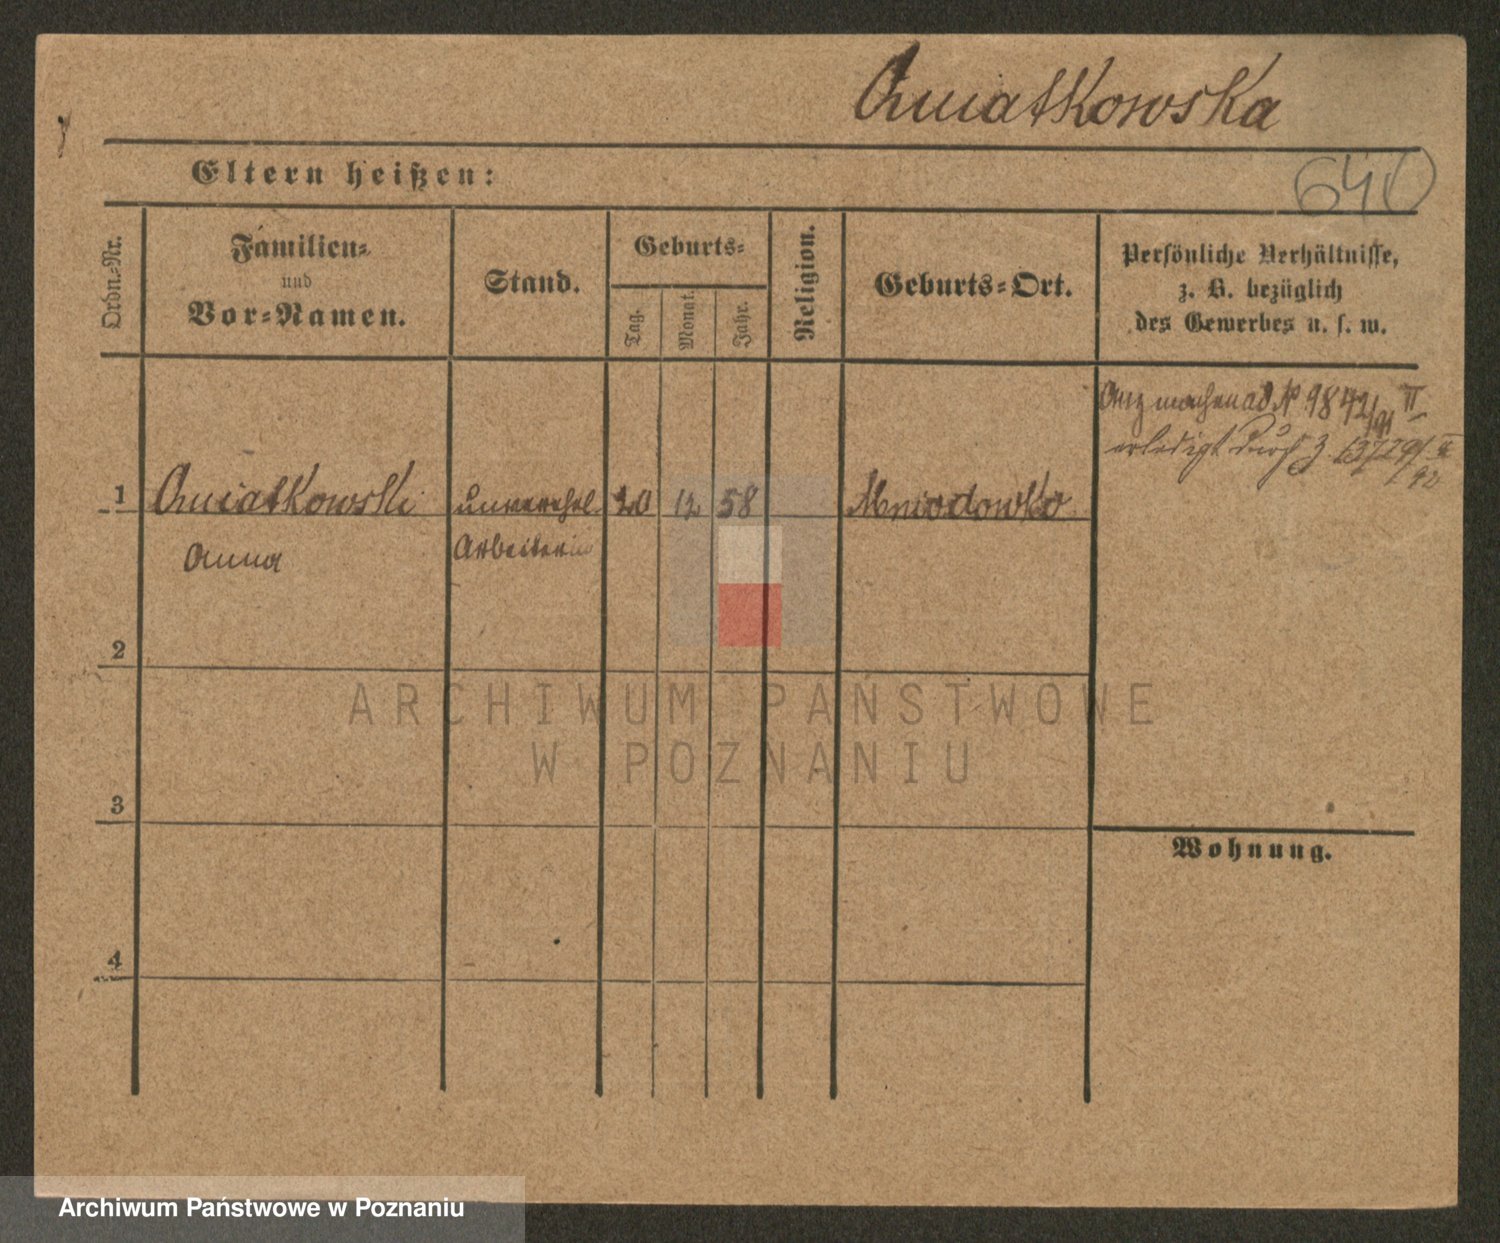 Kwiatkowska
640
Eltern heißen:
Ordn.-Nr.
Familien-
und
Vor-Namen.
Stand.
Geburts-
Tag.
Monat.
Jahr.
Religion.
Geburts-Ort.
Persönliche Verhältnisse,
z. B. bezüglich
des Gewerbes u. s. w.
1
Kwiatkowski
Anna
unverehel.
Arbeiterin
20
12
58
Mniodowko
9872/91 II
erledigt durch
2
3
4
Wohnung.
ARCHIWUM PAŃSTWOWE
W POZNANIU
Archiwum Państwowe w Poznaniu